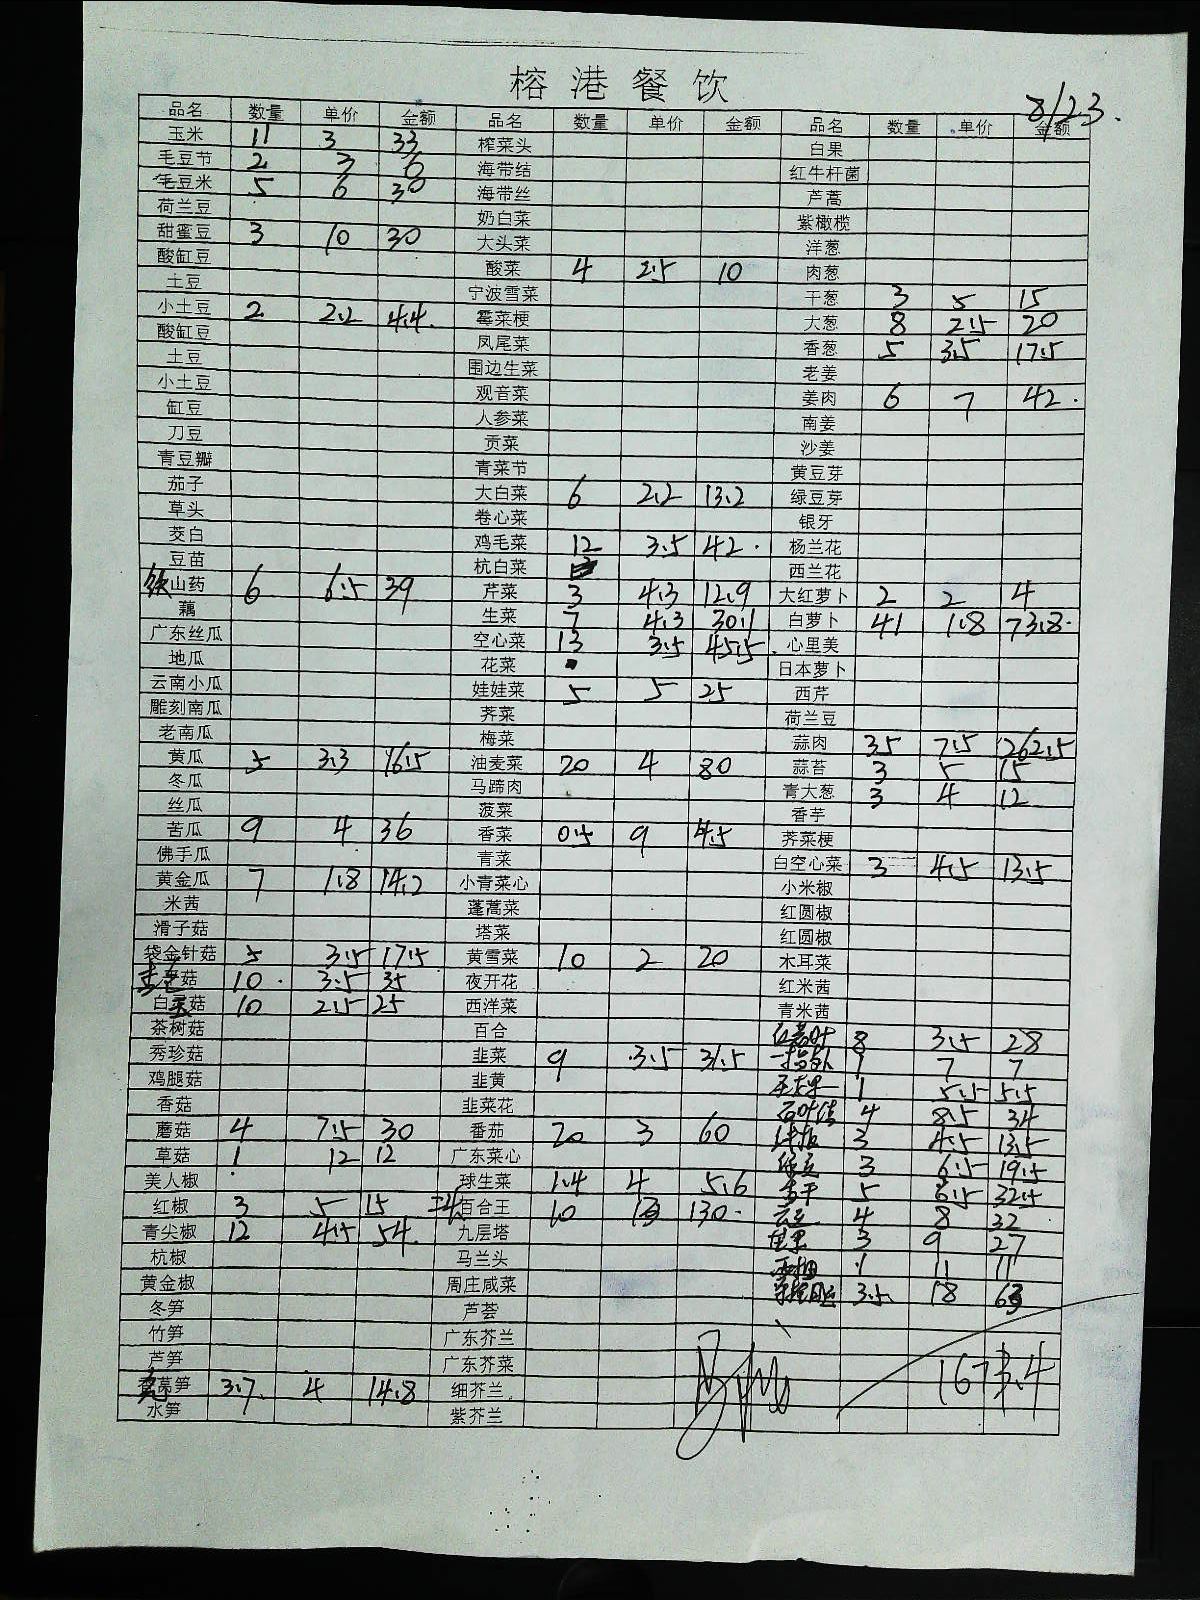 榕港餐饮
8/23.
品名 数量 单价 金额 品名 数量 单价 金额 品名 数量 单价 金额
玉米 11 3 33 榨菜头 白果
毛豆节 2 3 6 海带结 红牛杆菌
毛豆米 5 6 30 海带丝 芦蒿
荷兰豆 奶白菜 紫橄榄
甜蜜豆 3 10 30 大头菜 洋葱
酸缸豆 酸菜 4 2.5 10 肉葱
土豆 宁波雪菜 干葱 3 5 15
小土豆 2 2.2 4.4. 霉菜梗 大葱 8 2.5 20
酸缸豆 凤尾菜 香葱 5 3.5 17.5
土豆 围边生菜 老姜
小土豆 观音菜 姜肉 6 7 42.
缸豆 人参菜 南姜
刀豆 贡菜 沙姜
青豆瓣 青菜节 黄豆芽
茄子 大白菜 6 2.2 13.2 绿豆芽
草头 卷心菜 银牙
茭白 鸡毛菜 12 3.5 42. 杨兰花
豆苗 杭白菜 西兰花
铁山药 6 6.5 39 芹菜 3 4.3 12.9 大红萝卜 2 2 4
藕 生菜 7 4.3 30.1 白萝卜 41 1.8 73.8.
广东丝瓜 空心菜 13 3.5 45.5. 心里美
地瓜 花菜 日本萝卜
云南小瓜 娃娃菜 5 5 25 西芹
雕刻南瓜 荠菜 荷兰豆
老南瓜 梅菜 蒜肉 35 7.5 262.5
黄瓜 5 3.3 16.5 油麦菜 20 4 80 蒜苔 3 5 15
冬瓜 马蹄肉 青大葱 3 4 12
丝瓜 菠菜 香芋
苦瓜 9 4 36 香菜 0.5 9 4.5 荠菜梗
佛手瓜 青菜 白空心菜 3 4.5 13.5
黄金瓜 7 1.8 14.2 小青菜心 小米椒
米茜 蓬蒿菜 红圆椒
滑子菇 塔菜 红圆椒
袋金针菇 5 3.5 17.5 黄雪菜 10 2 20 木耳菜
菇 10. 3.5 35 夜开花 红米茜
白玉菇 10 2.5 25 西洋菜 青米茜
茶树菇 百合 8 3.5 28
秀珍菇 韭菜 9 3.5 31.5 1 7 7
鸡腿菇 韭黄 1 5.5 5.5
香菇 韭菜花 4 8.5 34
蘑菇 4 7.5 30 番茄 20 3 60 3 4.5 13.5
草菇 1 12 12 广东菜心 3 6.5 19.5
美人椒 球生菜 1.4 4 5.6 5 6.5 32.5
红椒 3 5 15 百合王 10 13 130. 4 8 32
青尖椒 12 4.5 54. 九层塔 3 9 27
杭椒 马兰头 1 11 11
黄金椒 周庄咸菜 3.5 18 63
冬笋 芦荟
竹笋 广东芥兰
芦笋 广东芥菜 1673.4
莴笋 3.7. 4 14.8 细芥兰
水笋 紫芥兰